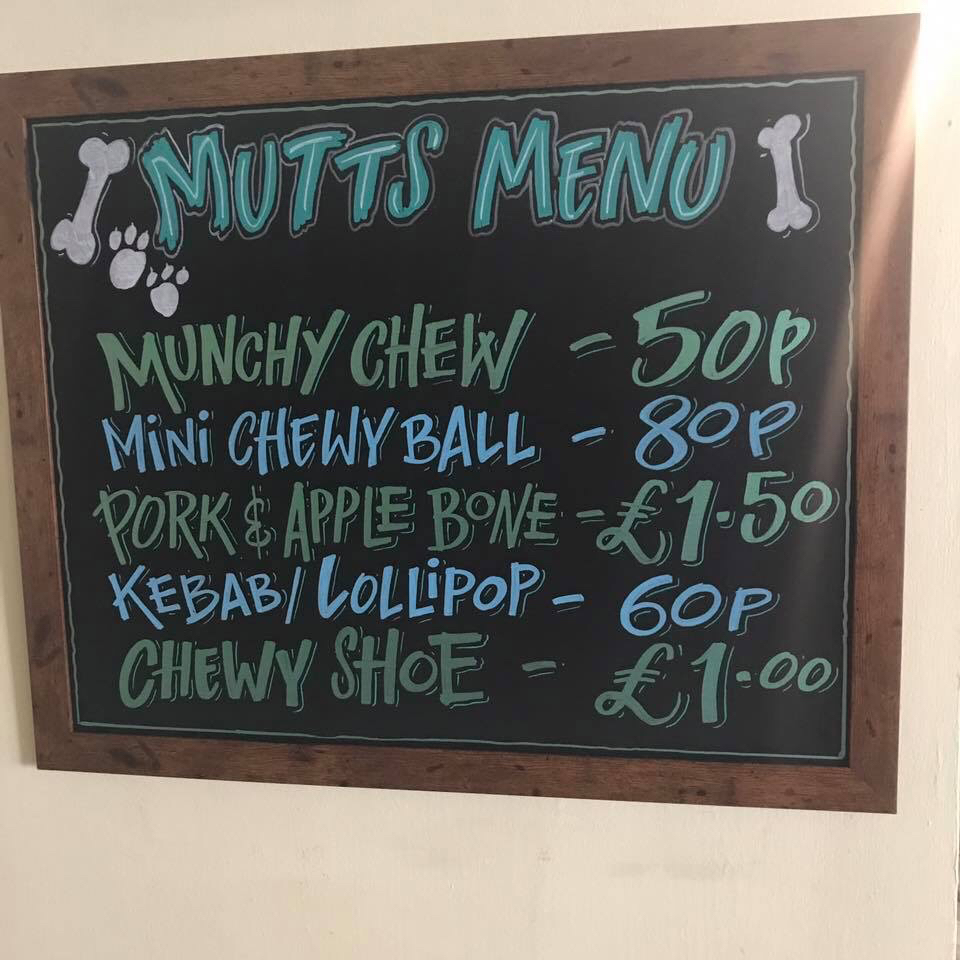 MUTTS MENU
MUNCHY CHEW - 50P
MiNi CHEWY BALL - 80P
PORK & APPLE BONE - £1.50
KEBAB/LOLLiPOP - 60P
CHEWY SHOE - £1.00